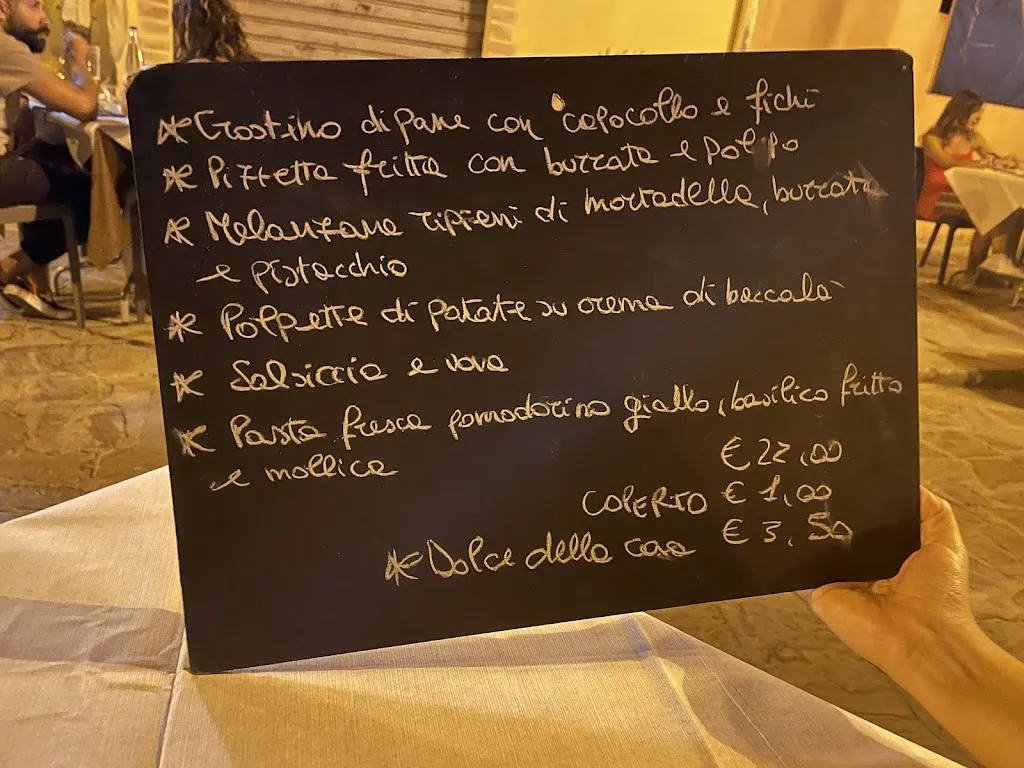 * Crostino di pane con capocollo e fichi
* Pizzetta fritta con burrata e polipo
* Melanzana ripieni di mortadella, burrata
e pistacchio
* Polpette di patate su crema di baccalà
* Salsiccia e uova
* Pasta fresca pomodorino giallo, basilico fritto
e mollica
€ 22,00
COPERTO € 1,00
* Dolce della casa € 3,50